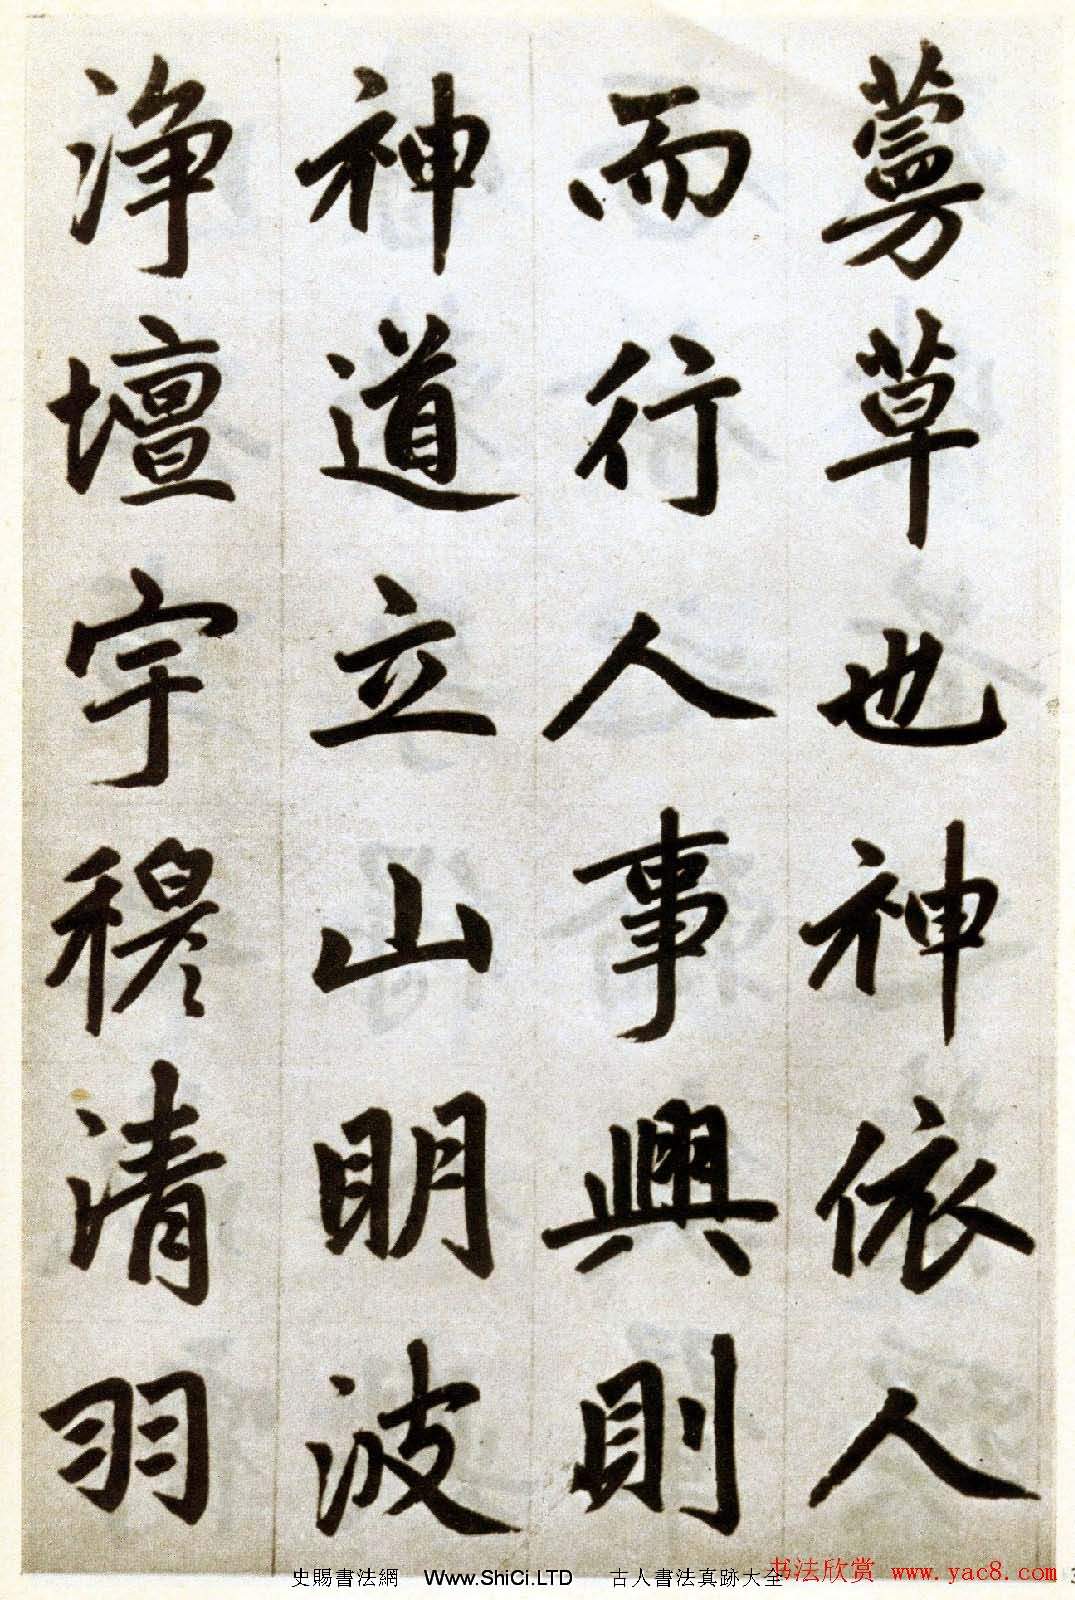 蔓草也神依人
而行人事興則
神道立山明波
浄壇宇穆清羽
史賜書法網 Www.ShiCi.LTD 古人書法真跡大全
书法欣赏 www.yac8.com